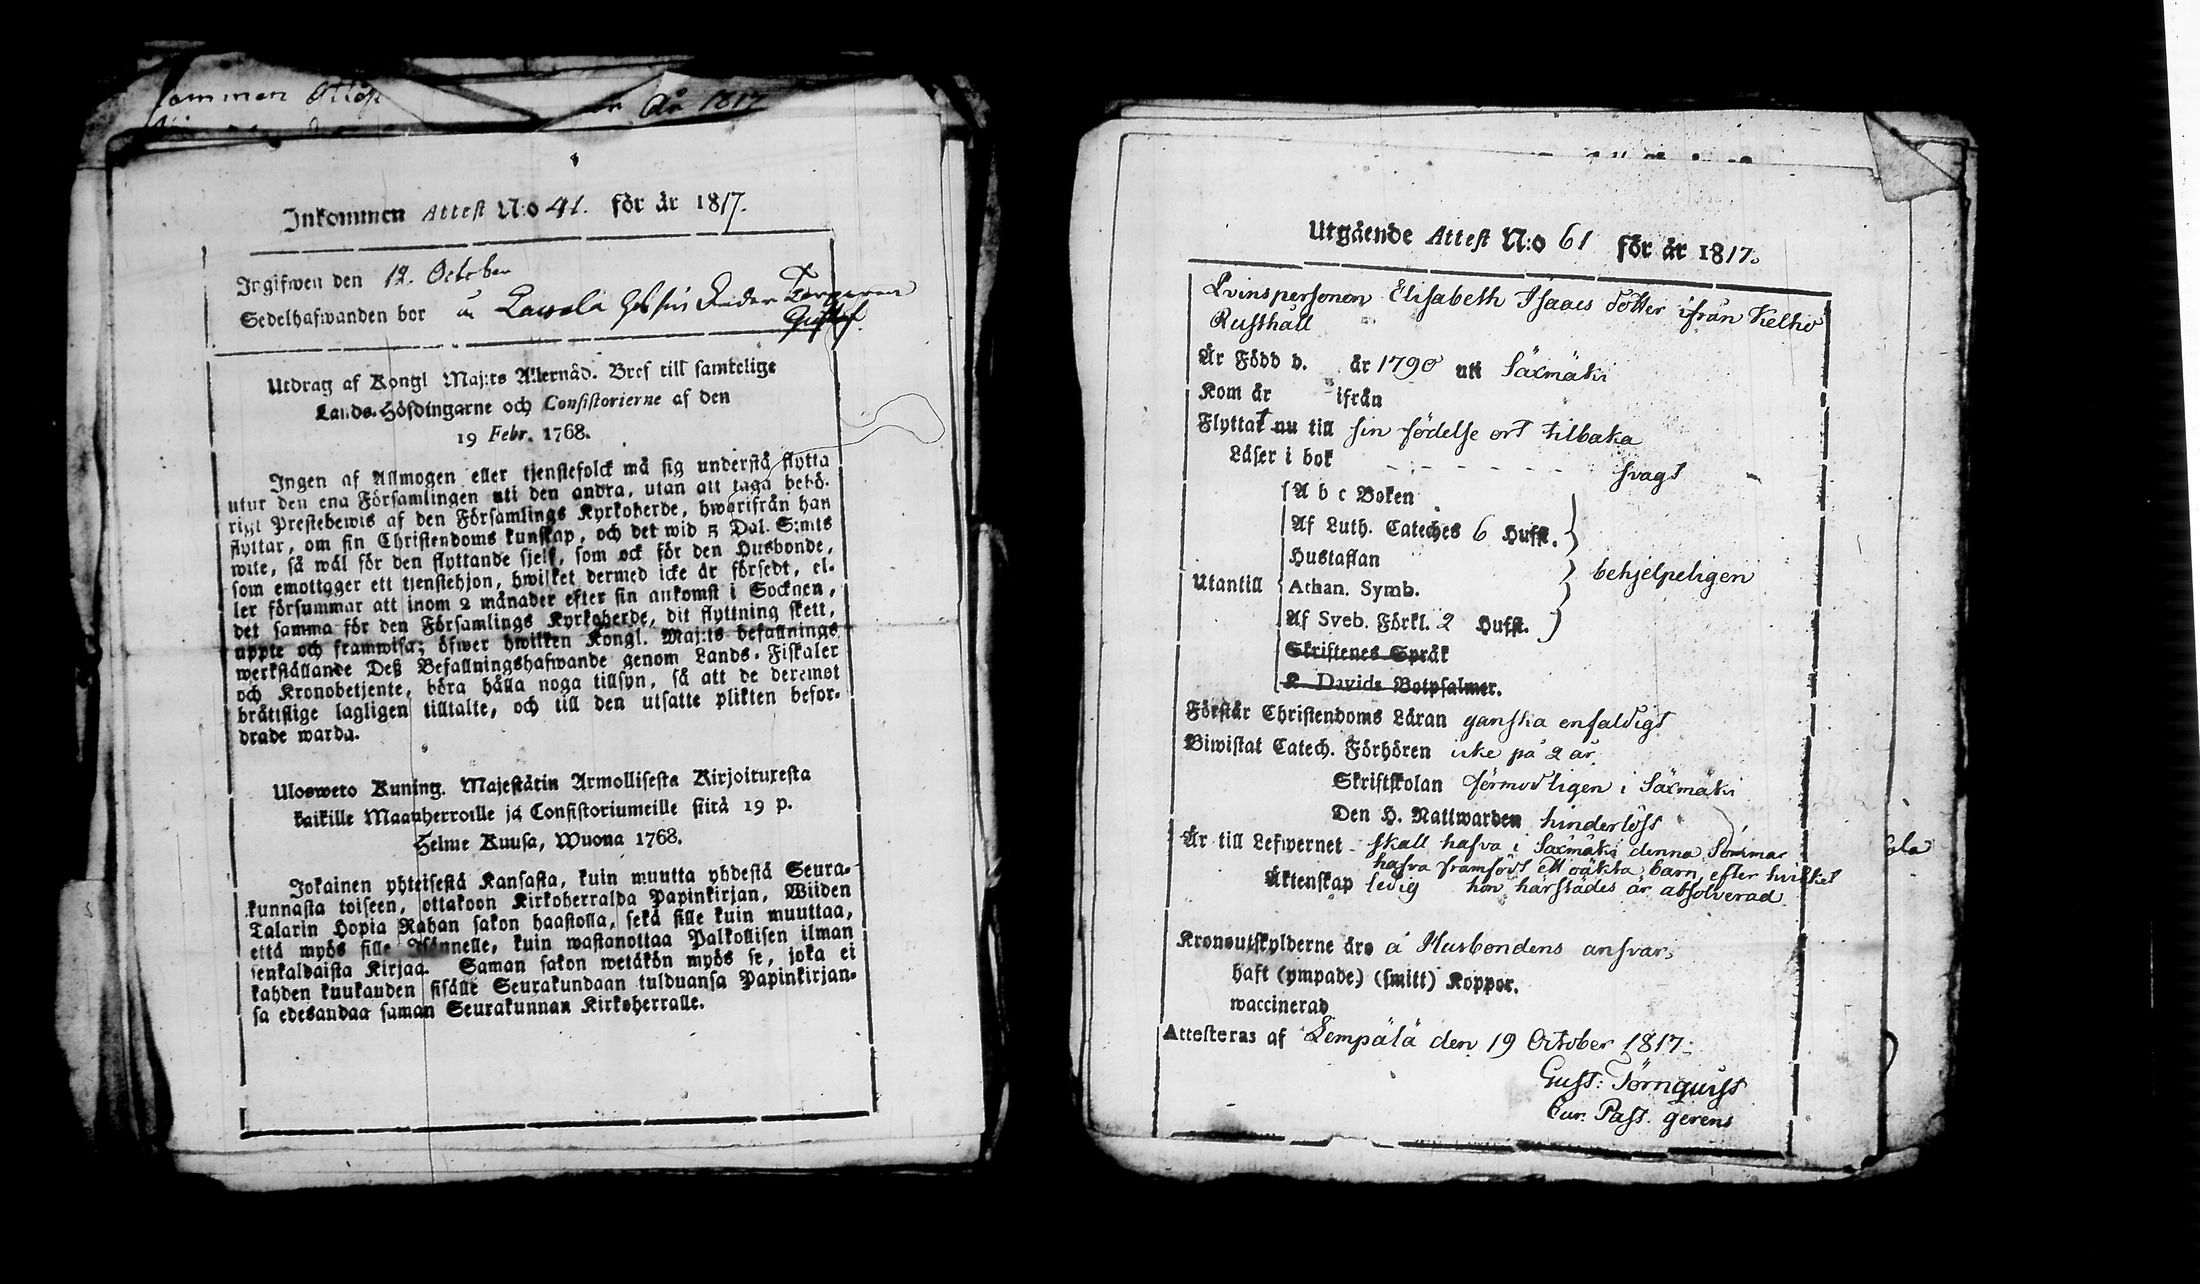 ommen Attest
År 1817
Inkommen Attest N:o 41. för år 1817.
Ingifwen den 12. October
Sedelhafwanden bor
Gustaf.
Utdrag af Kongl Maj:ts Allernåd. Bref till samtelige
Lands-Höfdingarne och Consistorierne af den
19 Febr. 1768.
Ingen af Allmogen eller tjenstefolck må sig understå flytta
utur den ena Församlingen uti den andra, utan att taga behö-
rigt Prestebewis af den Församlings Kyrkoherde, hwarifrån han
flyttar, om sin Christendoms kunskap, och det wid 5 Dal. S:mts
wite, så wäl för den flyttande sjelf, som ock för den Husbonde,
som emottager ett tjenstehjon, hwilket dermed icke är försedt, el-
ler försummar att inom 2 månader efter sin ankomst i Socknen,
det samma för den Församlings Kyrkoherde, dit flyttning skett,
uppte och framwisa; öfwer hwilken Kongl. Maj:ts befallnings
werkställande Deß Befallningshafwande genom Lands-Fiskaler
och Kronobetjente, böra hålla noga tillsyn, så att de deremot
bråttslige lagligen tilltalte, och till den utsatte plikten befor-
drade warda.
Ulosweto Kuning. Majestätin Armollisesta Kirjoituxesta
kaikille Maanherroille ja Consistoriumeille siitä 19 p.
Helme Kuusa, Wuona 1768.
Jokainen yhteisestä Kansasta, kuin muutta yhdestä Seura-
kunnasta toiseen, ottakoon Kirkoherralda Papinkirjan, Wiiden
Talarin Hopia Rahan sakon haastolla, sekä sille kuin muuttaa,
että myös sille Isännelle, kuin wastanottaa Palkollisen ilman
senkaldaista Kirjaa. Saman sakon wetäkön myös se, joka ei
kahden kuukauden sisälle Seurakundaan tulduansa Papinkirjan-
sa edesandaa saman Seurakunnan Kirkoherralle.
Utgående Attest N:o 61 för år 1817.
Qvinspersonen Elisabeth Isaacs dotter ifrån Kelho
Rusthåll
Är Född d. år 1790 uti Säxmäki
Kom år ifrån
Flyttat nu till sin födelse ort tilbaka
Läser i bok svagt
A b c Boken
Af Luth. Cateches 6 Hufst.
Hustaflan
Utantill Athan. Symb. behjelpeligen
Af Sveb. Förkl. 2 Hufst.
Skriftenes Språk
K. Davids Botpsalmer.
Förstår Christendoms Läran ganska enfaldigt
Biwistat Catech. Förhören icke på 2 år
Skriftskolan förmodligen i Säxmäki
Den H. Nattwarden hinderlöst
Är till Lefwernet skall hafva i Säxmäki denna Sommar
hafva framfödt ett oäkta barn, efter hvilket
Äktenskap ledig hon härstädes är absolverad
Kronoutskylderne äro å Husbondens ansvar,
haft (ympade) (smitt) Koppor.
waccinerad
Attesteras af Lempälä den 19 October 1817.
Gust: Törnqvist
Cur. Past. gerens
ola